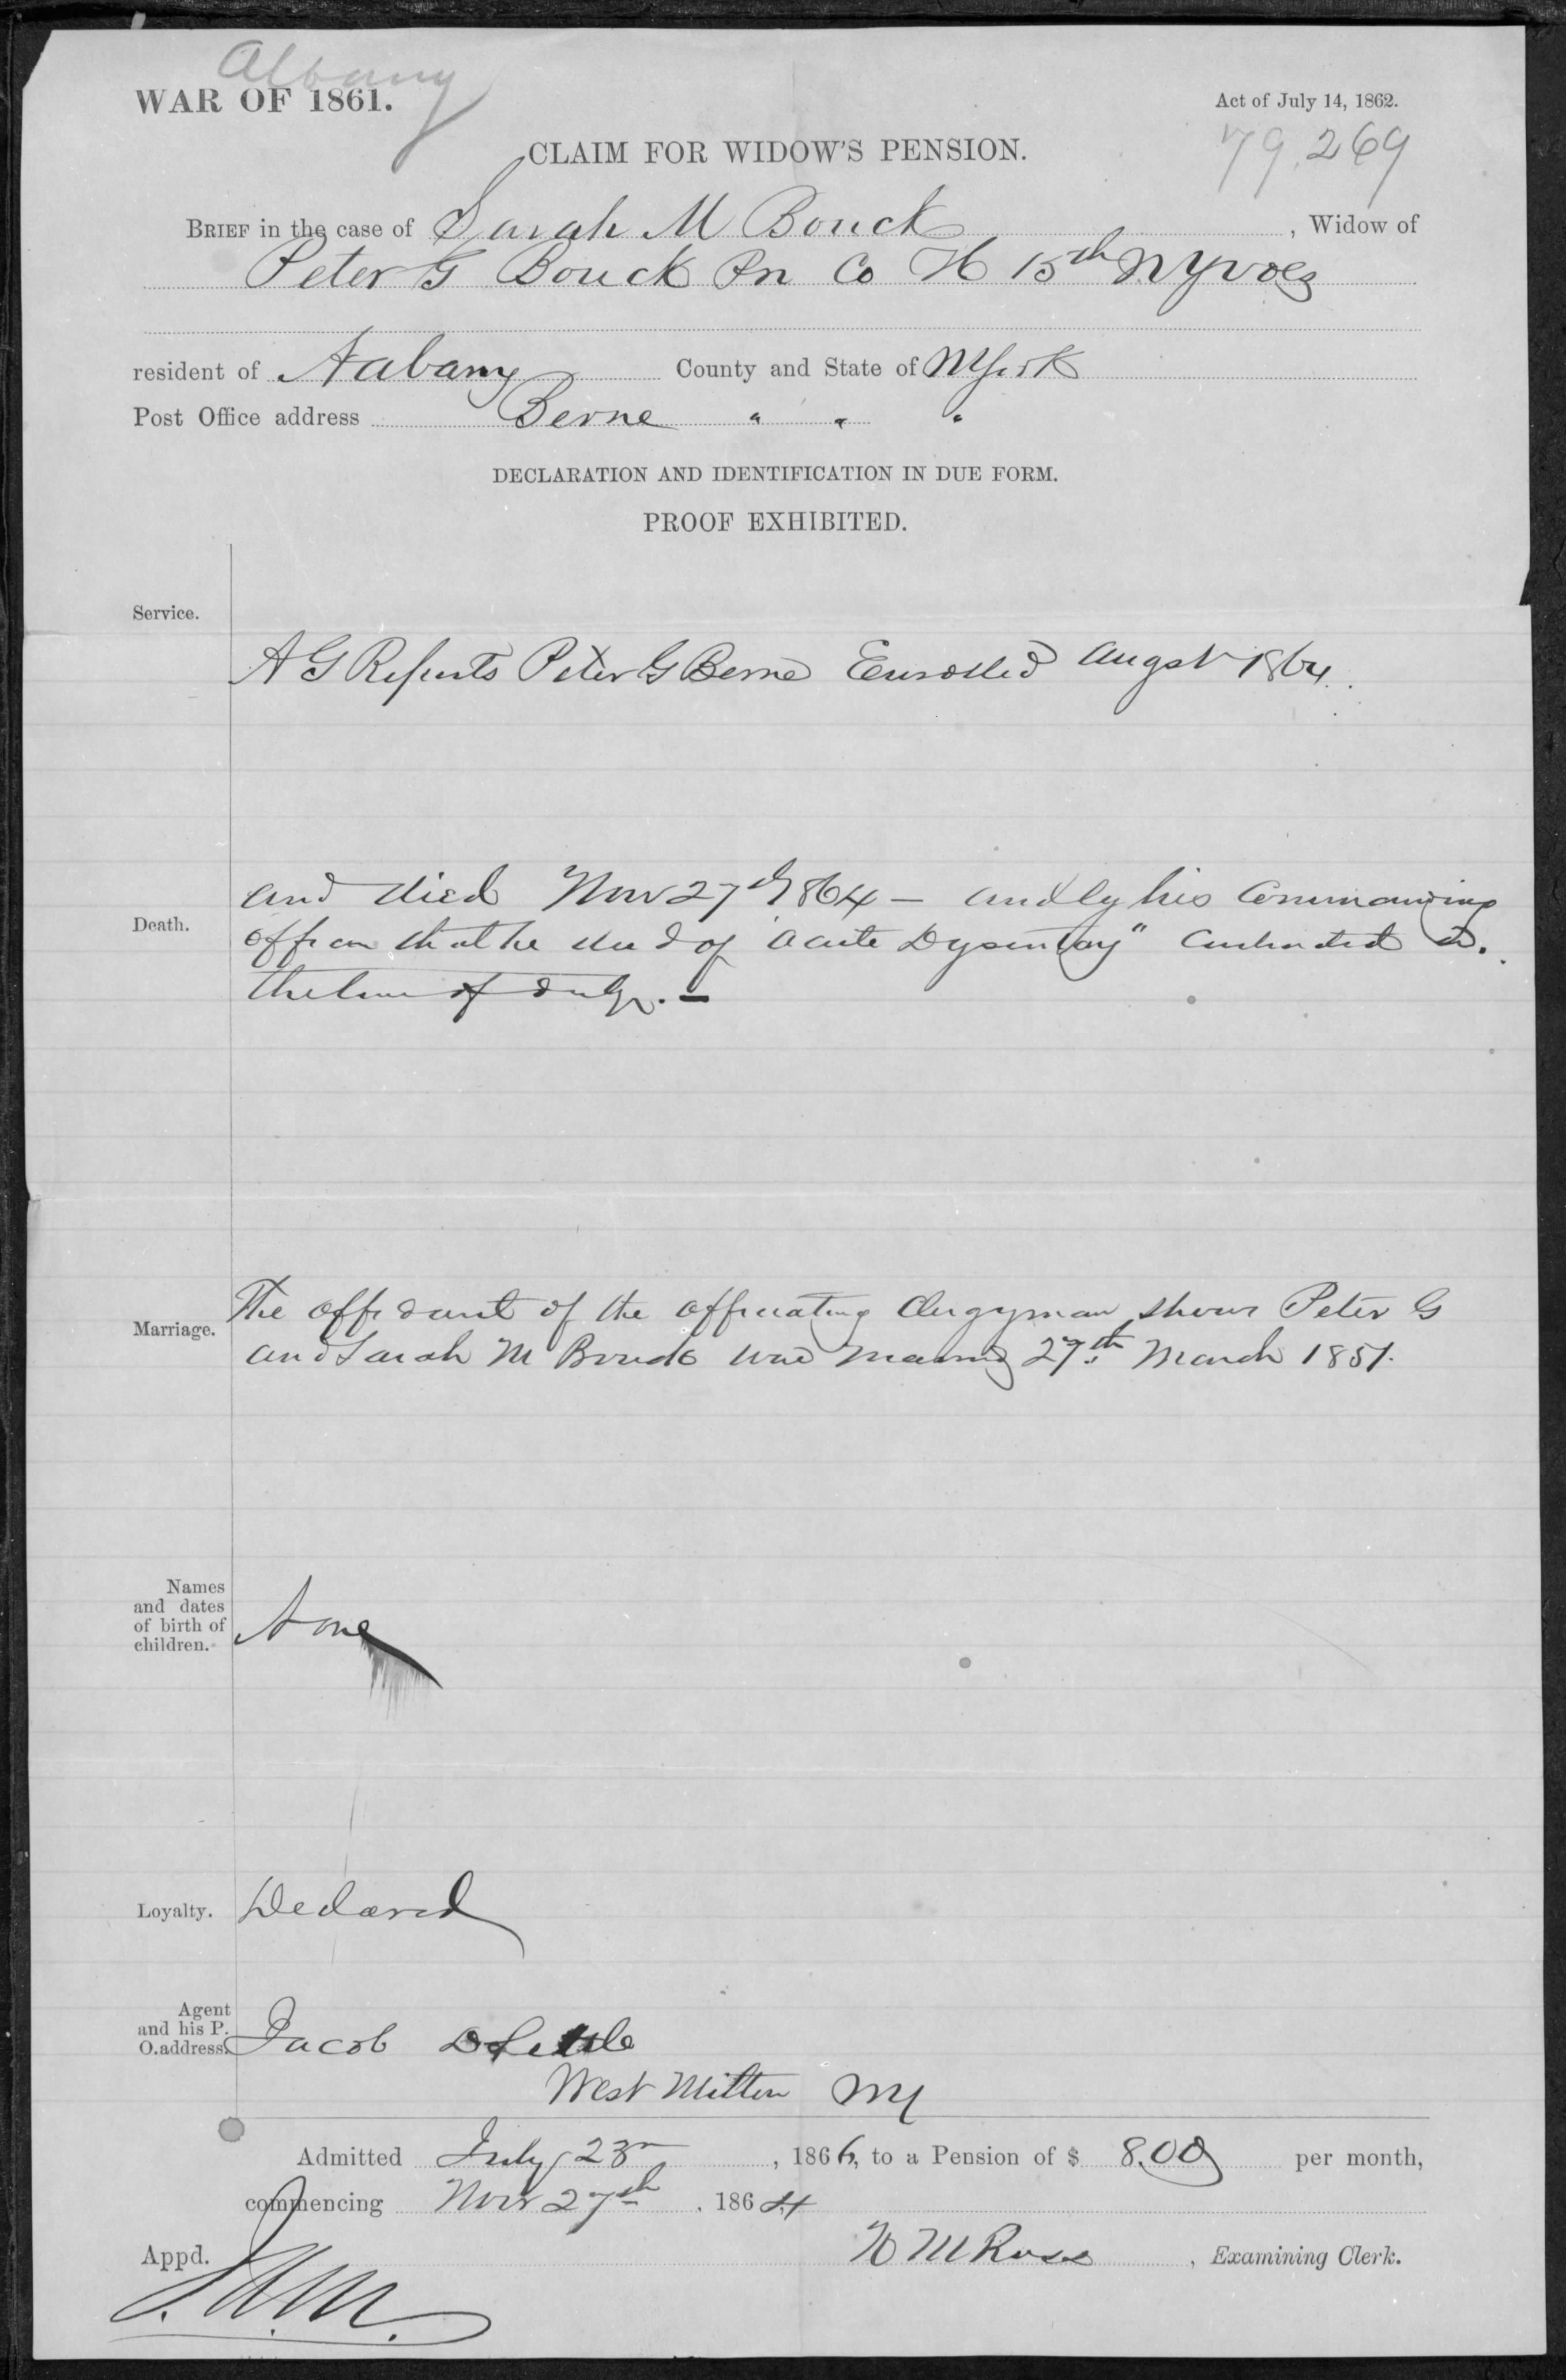 Albany
WAR OF 1861.
Act of July 14, 1862.
79,269
CLAIM FOR WIDOW'S PENSION.
BRIEF in the case of Sarah M Bouck, Widow of
Peter G Bouck Co H 15th NY Vols
resident of Albany County and State of N York
Post Office address Berne " " "
DECLARATION AND IDENTIFICATION IN DUE FORM.
PROOF EXHIBITED.
Service.
A G Reports Peter G Berne Enrolled Augst 1864.
Death.
and died Nov 27th 1864 — and by his Commanding
officer that he died of "acute Dysentery" contracted in
the line of duty. —
Marriage.
The affidavit of the officiating Clergyman shows Peter G
and Sarah M Bouck was married 27th March 1851.
Names
and dates
of birth of
children.
None
Loyalty.
Declared
Agent
and his P.
O. address.
Jacob
West Milton NY
Admitted July 23, 1866, to a Pension of $ 8.00 per month,
commencing Nov 27th, 1864
Appd.
M Ross, Examining Clerk.